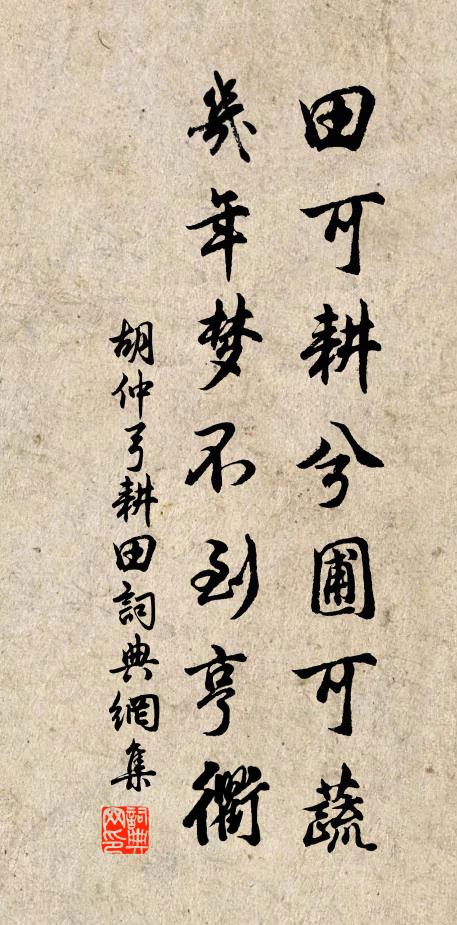 田可耕兮圃可蔬
幾年梦不到亨衢
胡仲弓耕田詞典網集
詞典網印